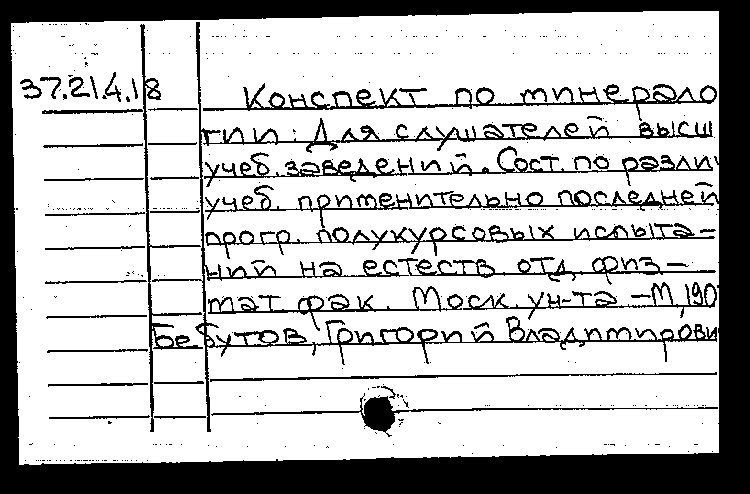 37.21.4.18
Конспект по минерало
гии: Для слушателей высш
учеб. заведений. Сост. по разли
учеб. применительно последней
прогр. полукурсовых испыта-
ний на естеств. отд. физ-
мат. фак. Моск. ун-та - М, 190
Бебутов, Григорий Владимирови